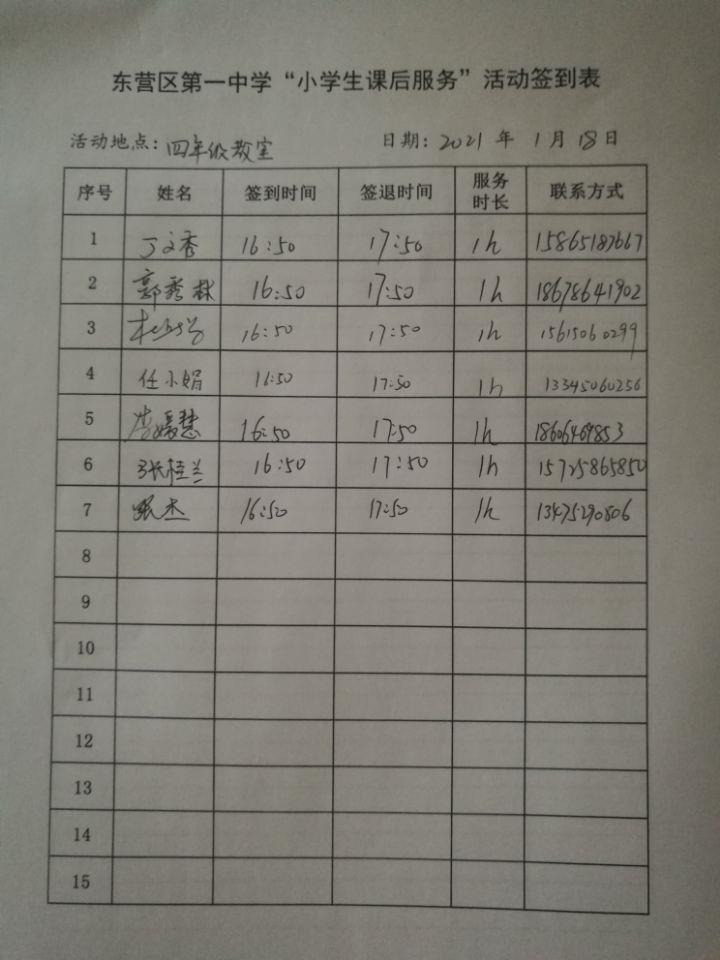 东营区第一中学“小学生课后服务”活动签到表
活动地点：四年级教室 日期：2021 年 1 月 18 日
序号 姓名 签到时间 签退时间 服务时长 联系方式
1 丁文香 16:50 17:50 1h 15865187667
2 郭秀林 16:50 17:50 1h 18678641902
3 16:50 17:50 1h 15615060299
4 任小娟 16:50 17:50 1h 13345060256
5 李媛慧 16:50 17:50 1h 18606469853
6 张桂兰 16:50 17:50 1h 15725865850
7 杰 16:50 17:50 1h 13475290806
8
9
10
11
12
13
14
15